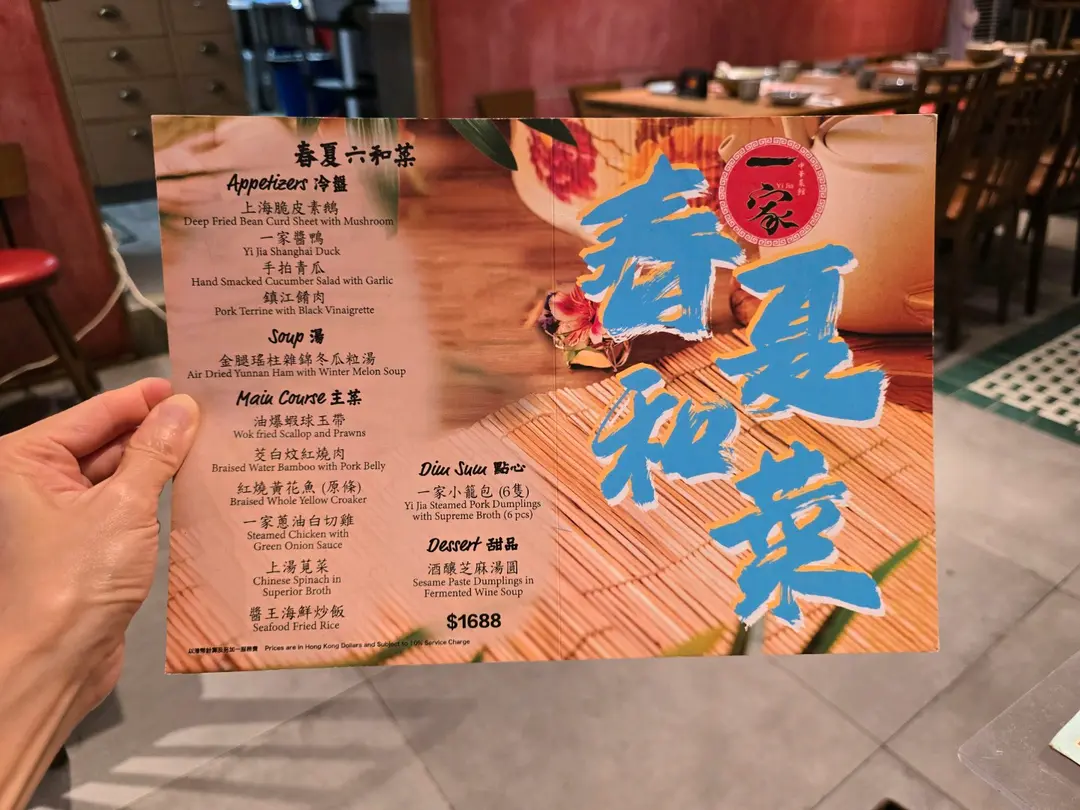 春夏六和菜
Appetizers 冷盤
上海脆皮素鵝
Deep Fried Bean Curd Sheet with Mushroom
一家醬鴨
Yi Jia Shanghai Duck
手拍青瓜
Hand Smacked Cucumber Salad with Garlic
鎮江餚肉
Pork Terrine with Black Vinaigrette
Soup 湯
金腿瑤柱雜錦冬瓜粒湯
Air Dried Yunnan Ham with Winter Melon Soup
Main Course 主菜
油爆蝦球玉帶
Wok fried Scallop and Prawns
茭白炆紅燒肉
Braised Water Bamboo with Pork Belly
紅燒黃花魚 (原條)
Braised Whole Yellow Croaker
一家蔥油白切雞
Steamed Chicken with
Green Onion Sauce
上湯莧菜
Chinese Spinach in
Superior Broth
醬王海鮮炒飯
Seafood Fried Rice
Dim Sum 點心
一家小籠包 (6隻)
Yi Jia Steamed Pork Dumplings
with Supreme Broth (6 pcs)
Dessert 甜品
酒釀芝麻湯圓
Sesame Paste Dumplings in
Fermented Wine Soup
$1688
Prices are in Hong Kong Dollars and Subject to 10% Service Charge
一家
Yi Jia
春夏
和菜